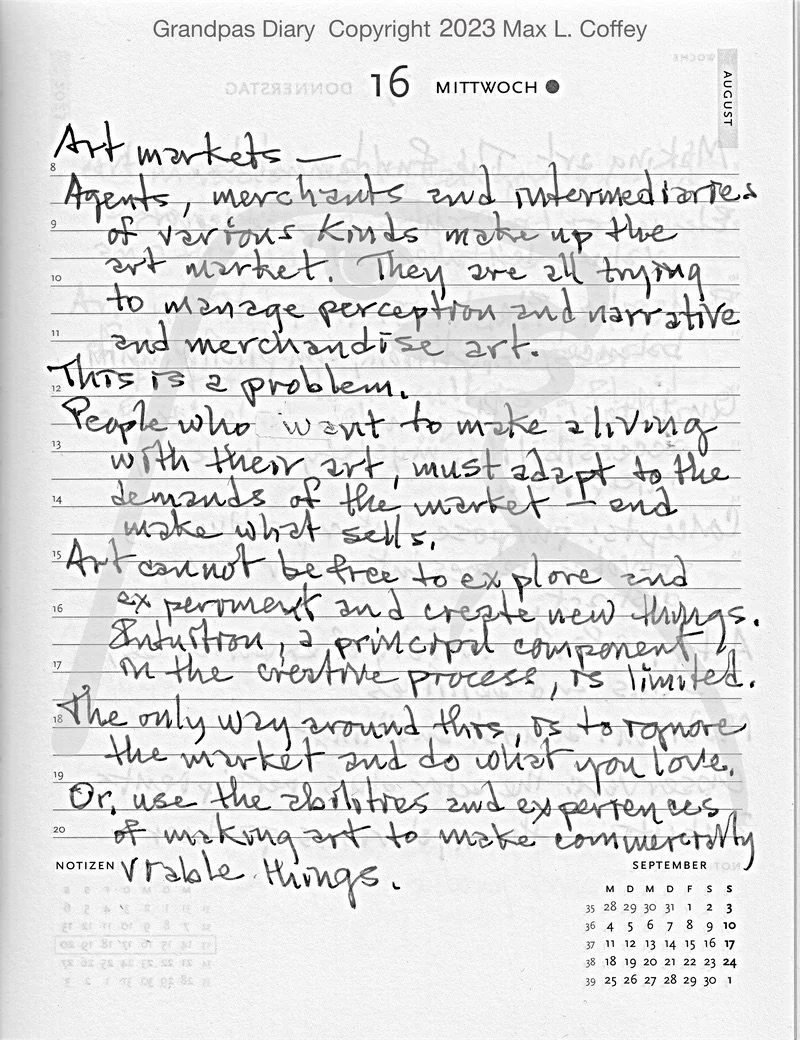 Grandpas Diary Copyright 2023 Max L. Coffey
16 MITTWOCH
AUGUST
Art markets —
8
Agents, merchants and intermediaries
9
of various kinds make up the
art market. They are all trying
10
to manage perception and narrative
11
and merchandise art.
This is a problem.
12
People who want to make a living
13
with their art, must adapt to the
demands of the market — and
14
make what sells.
15
Art cannot be free to explore and
experiment and create new things.
16
Intuition, a principal component
17
in the creative process, is limited.
The only way around this, is to ignore
18
the market and do what you love.
19
Or, use the abilities and experiences
20
of making art to make commercially
NOTIZEN
viable things.
SEPTEMBER
M D M D F S S
35 28 29 30 31 1 2 3
36 4 5 6 7 8 9 10
37 11 12 13 14 15 16 17
38 18 19 20 21 22 23 24
39 25 26 27 28 29 30 1